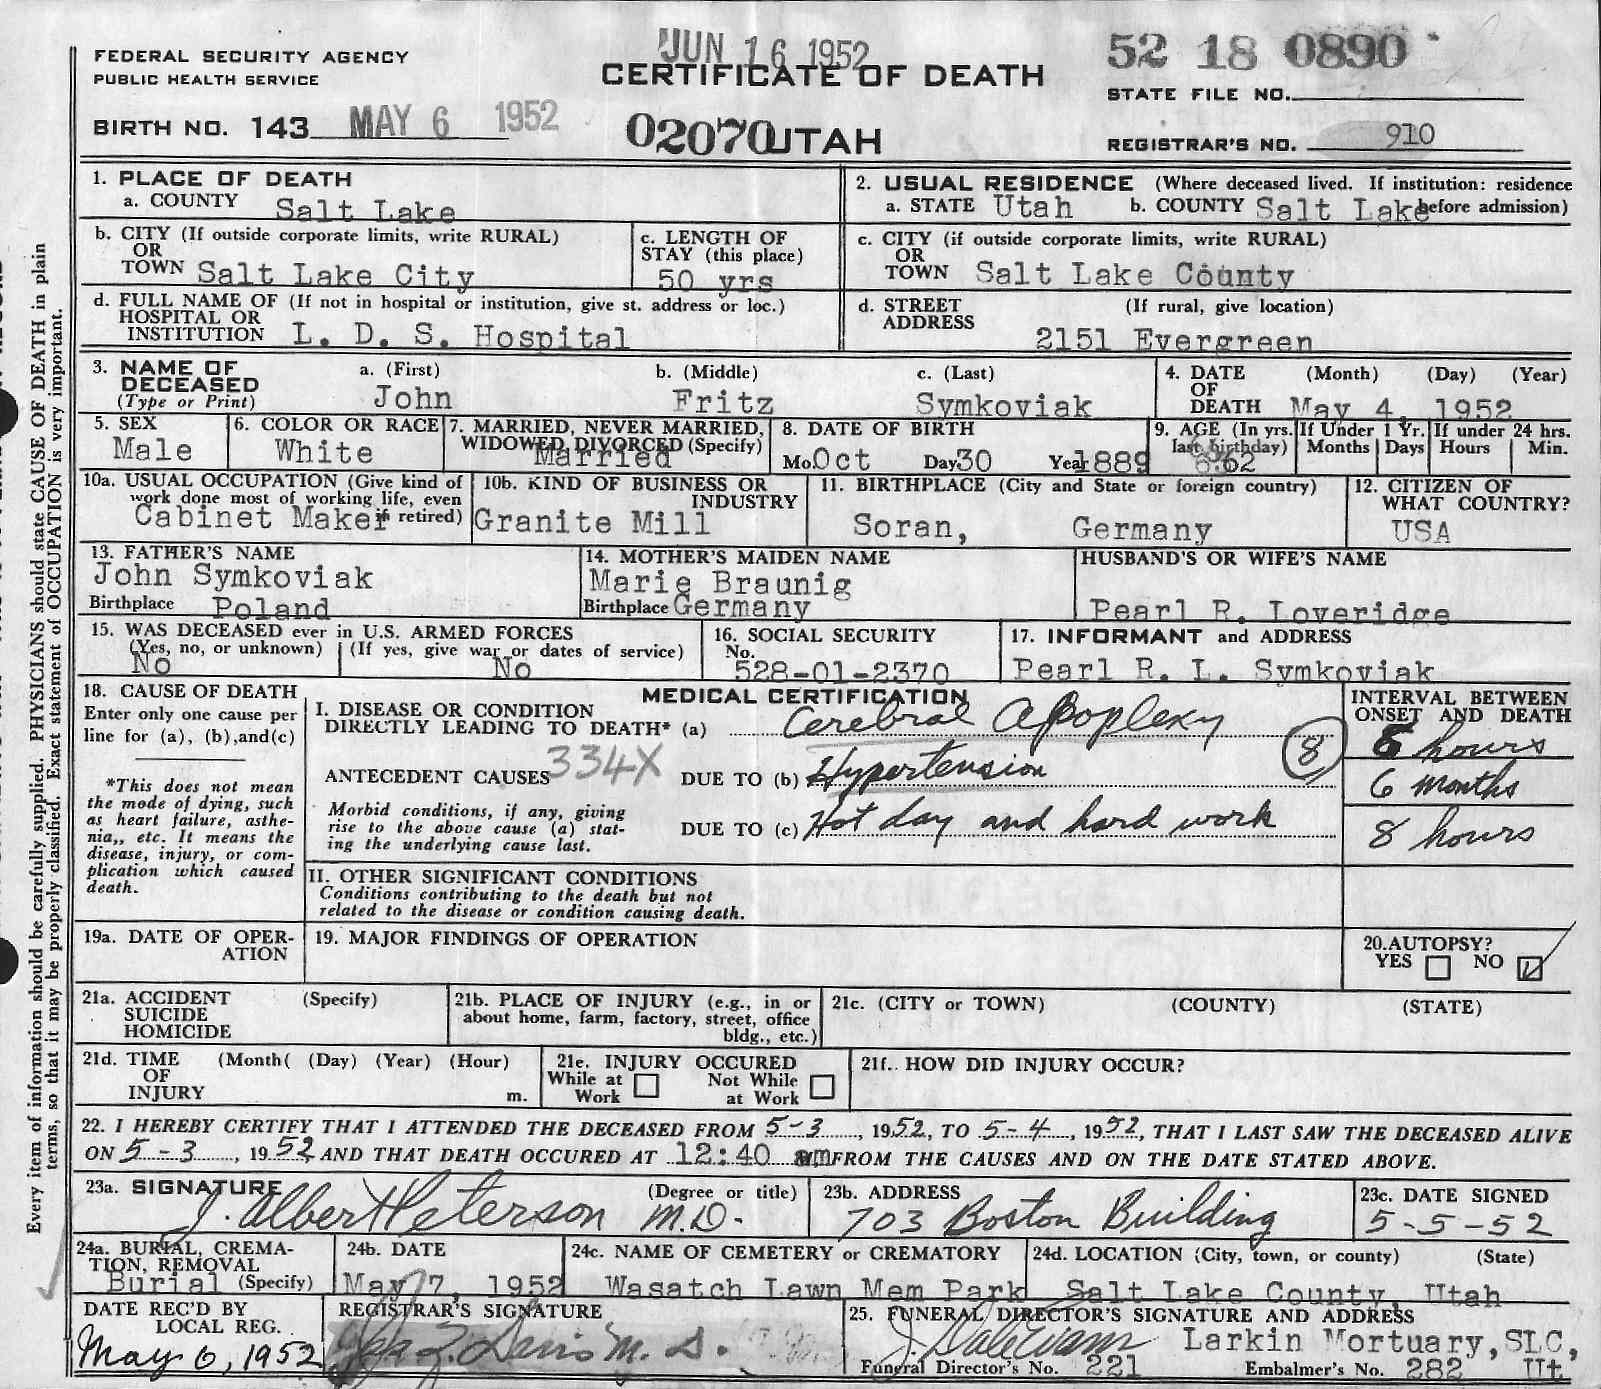 JUN 16 1952
52 18 0890
FEDERAL SECURITY AGENCY
PUBLIC HEALTH SERVICE
CERTIFICATE OF DEATH
STATE FILE NO.
BIRTH NO. 143 MAY 6 1952
02070 UTAH
REGISTRAR'S NO. 910
1. PLACE OF DEATH
a. COUNTY Salt Lake
2. USUAL RESIDENCE (Where deceased lived. If institution: residence
a. STATE Utah b. COUNTY Salt Lake before admission)
b. CITY (If outside corporate limits, write RURAL)
OR
TOWN Salt Lake City
c. LENGTH OF
STAY (this place)
50 yrs
c. CITY (if outside corporate limits, write RURAL)
OR
TOWN Salt Lake County
d. FULL NAME OF (If not in hospital or institution, give st. address or loc.)
HOSPITAL OR
INSTITUTION L. D. S. Hospital
d. STREET (If rural, give location)
ADDRESS
2151 Evergreen
3. NAME OF
DECEASED
(Type or Print)
a. (First) b. (Middle) c. (Last)
John Fritz Symkoviak
4. DATE (Month) (Day) (Year)
OF
DEATH May 4, 1952
5. SEX
Male
6. COLOR OR RACE
White
7. MARRIED, NEVER MARRIED,
WIDOWED, DIVORCED (Specify)
Married
8. DATE OF BIRTH
Mo. Oct Day 30 Year 1889
9. AGE (In yrs.
last birthday)
62
If Under 1 Yr.
Months Days
If under 24 hrs.
Hours Min.
10a. USUAL OCCUPATION (Give kind of
work done most of working life, even
if retired)
Cabinet Maker
10b. KIND OF BUSINESS OR
INDUSTRY
Granite Mill
11. BIRTHPLACE (City and State or foreign country)
Soran, Germany
12. CITIZEN OF
WHAT COUNTRY?
USA
13. FATHER'S NAME
John Symkoviak
Birthplace Poland
14. MOTHER'S MAIDEN NAME
Marie Braunig
Birthplace Germany
HUSBAND'S OR WIFE'S NAME
Pearl R. Loveridge
15. WAS DECEASED ever in U.S. ARMED FORCES
(Yes, no, or unknown) (If yes, give war or dates of service)
No No
16. SOCIAL SECURITY
No.
528-01-2370
17. INFORMANT and ADDRESS
Pearl R. L. Symkoviak
18. CAUSE OF DEATH
Enter only one cause per
line for (a), (b),and(c)
*This does not mean
the mode of dying, such
as heart failure, asthe-
nia,, etc. It means the
disease, injury, or com-
plication which caused
death.
MEDICAL CERTIFICATION
I. DISEASE OR CONDITION
DIRECTLY LEADING TO DEATH* (a) Cerebral Apoplexy
ANTECEDENT CAUSES 334X DUE TO (b) Hypertension
8
Morbid conditions, if any, giving
rise to the above cause (a) stat-
ing the underlying cause last.
DUE TO (c) Hot day and hard work
INTERVAL BETWEEN
ONSET AND DEATH
hours
6 months
8 hours
II. OTHER SIGNIFICANT CONDITIONS
Conditions contributing to the death but not
related to the disease or condition causing death.
19a. DATE OF OPER-
ATION
19. MAJOR FINDINGS OF OPERATION
20.AUTOPSY?
YES NO
21a. ACCIDENT (Specify)
SUICIDE
HOMICIDE
21b. PLACE OF INJURY (e.g., in or
about home, farm, factory, street, office
bldg., etc.)
21c. (CITY or TOWN) (COUNTY) (STATE)
21d. TIME (Month( (Day) (Year) (Hour)
OF
INJURY m.
21e. INJURY OCCURED
While at Not While
Work at Work
21f.. HOW DID INJURY OCCUR?
22. I HEREBY CERTIFY THAT I ATTENDED THE DECEASED FROM 5-3, 1952, TO 5-4, 1952, THAT I LAST SAW THE DECEASED ALIVE
ON 5-3, 1952 AND THAT DEATH OCCURED AT 12:40 am FROM THE CAUSES AND ON THE DATE STATED ABOVE.
23a. SIGNATURE (Degree or title)
J. Albert Peterson M.D.
23b. ADDRESS
703 Boston Building
23c. DATE SIGNED
5-5-52
24a. BURIAL, CREMA-
TION, REMOVAL
Burial (Specify)
24b. DATE
May 7, 1952
24c. NAME OF CEMETERY or CREMATORY
Wasatch Lawn Mem Park
24d. LOCATION (City, town, or county) (State)
Salt Lake County, Utah
DATE REC'D BY
LOCAL REG.
May 6, 1952
REGISTRAR'S SIGNATURE
Davis M. D.
25. FUNERAL DIRECTOR'S SIGNATURE AND ADDRESS
J. Dale Evans Larkin Mortuary, SLC,
Funeral Director's No. 221 Embalmer's No. 282 Ut.
Every item of information should be carefully supplied. PHYSICIANS should state CAUSE OF DEATH in plain
terms, so that it may be properly classified. Exact statement of OCCUPATION is very important.